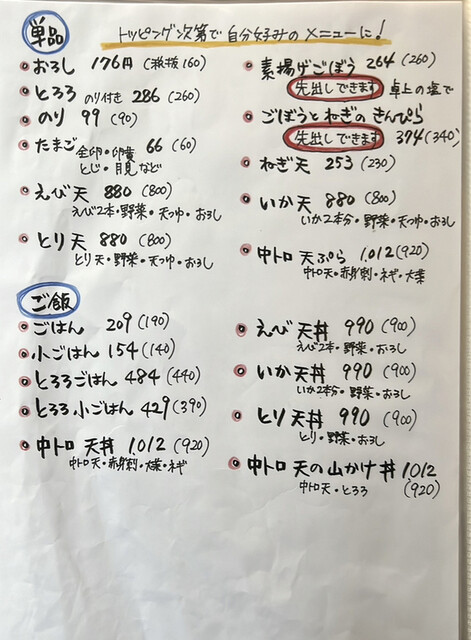 単品
トッピング次第で自分好みのメニューに!
おろし 176円(税抜160)
とろろ のり付き 286(260)
のり 99(90)
たまご 全卵・卵黄 66(60)
とじ・月見などど
えび天 880(800)
えび2本・野菜・天つゆ・おろし
とり天 880(800)
とり天・野菜・天つゆ・おろし
素揚げごぼう 264(260)
先出しできます 卓上の塩で
ごぼうとねぎのきんぴら
先出しできます 374(340)
ねぎ天 253(230)
いか天 880(800)
いか2本分・野菜・天つゆ・おろし
中トロ天ぷら 1,012(920)
中トロ天・赤身刺・ネギ・大葉
ご飯
ごはん 209(190)
小ごはん 154(140)
とろろごはん 484(440)
とろろ小ごはん 429(390)
中トロ天丼 1,012(920)
中トロ天・赤身刺・大葉・ネギ
えび天丼 990(900)
えび2本・野菜・おろし
いか天丼 990(900)
いか2本分・野菜・おろし
とり天丼 990(900)
とり・野菜・おろし
中トロ天の山かけ丼 1,012
中トロ天・とろろ (920)